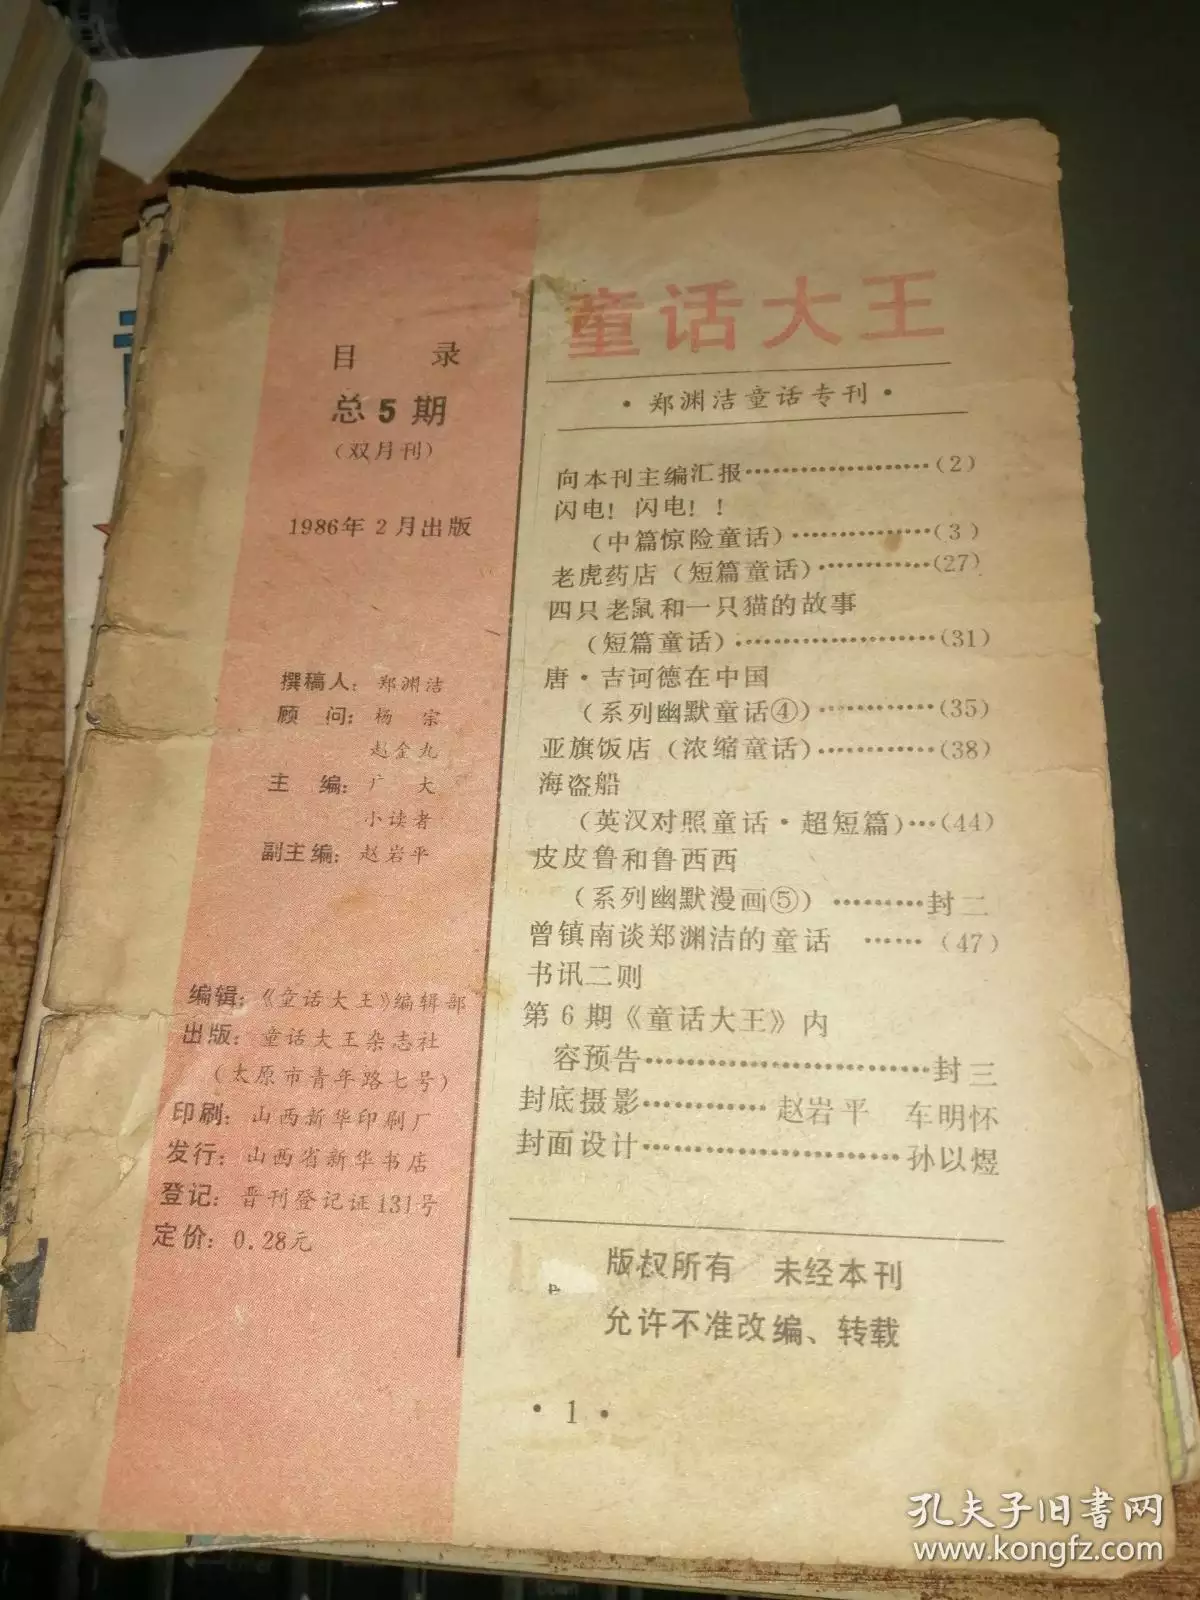 目 录
总5期
（双月刊）
1986年2月出版
撰稿人：郑渊洁
顾 问：杨 宗
赵金九
主 编：广 大
小读者
副主编：赵岩平
编辑：《童话大王》编辑部
出版：童话大王杂志社
（太原市青年路七号）
印刷：山西新华印刷厂
发行：山西省新华书店
登记：晋刊登记证131号
定价：0.28元
童话大王
·郑渊洁童话专刊·
向本刊主编汇报…………………(2)
闪电！闪电！！
（中篇惊险童话）……………(3)
老虎药店（短篇童话）…………(27)
四只老鼠和一只猫的故事
（短篇童话）…………………(31)
唐·吉诃德在中国
（系列幽默童话④）…………(35)
亚旗饭店（浓缩童话）…………(38)
海盗船
（英汉对照童话·超短篇）…(44)
皮皮鲁和鲁西西
（系列幽默漫画⑤）………封二
曾镇南谈郑渊洁的童话 ……(47)
书讯二则
第6期《童话大王》内
容预告…………………………封三
封底摄影…………赵岩平 车明怀
封面设计………………………孙以煜
版权所有 未经本刊
允许不准改编、转载
·1·
孔夫子旧书网
www.kongfz.com